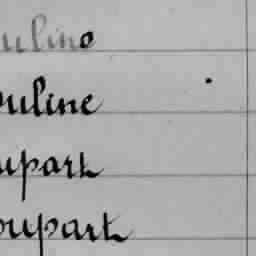 uline
ouline
upart
oupart